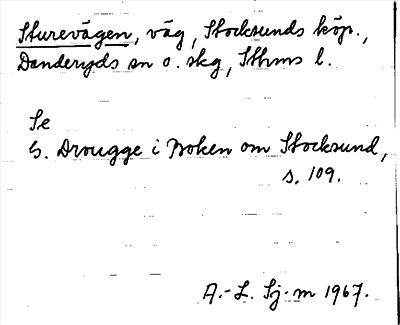 Sturevägen, väg, Stocksunds köp.,
Danderyds sn o. skg, Sthms l.
Se
G. Drougge i Boken om Stocksund,
s. 109.
A.-L. Sj-m 1967.